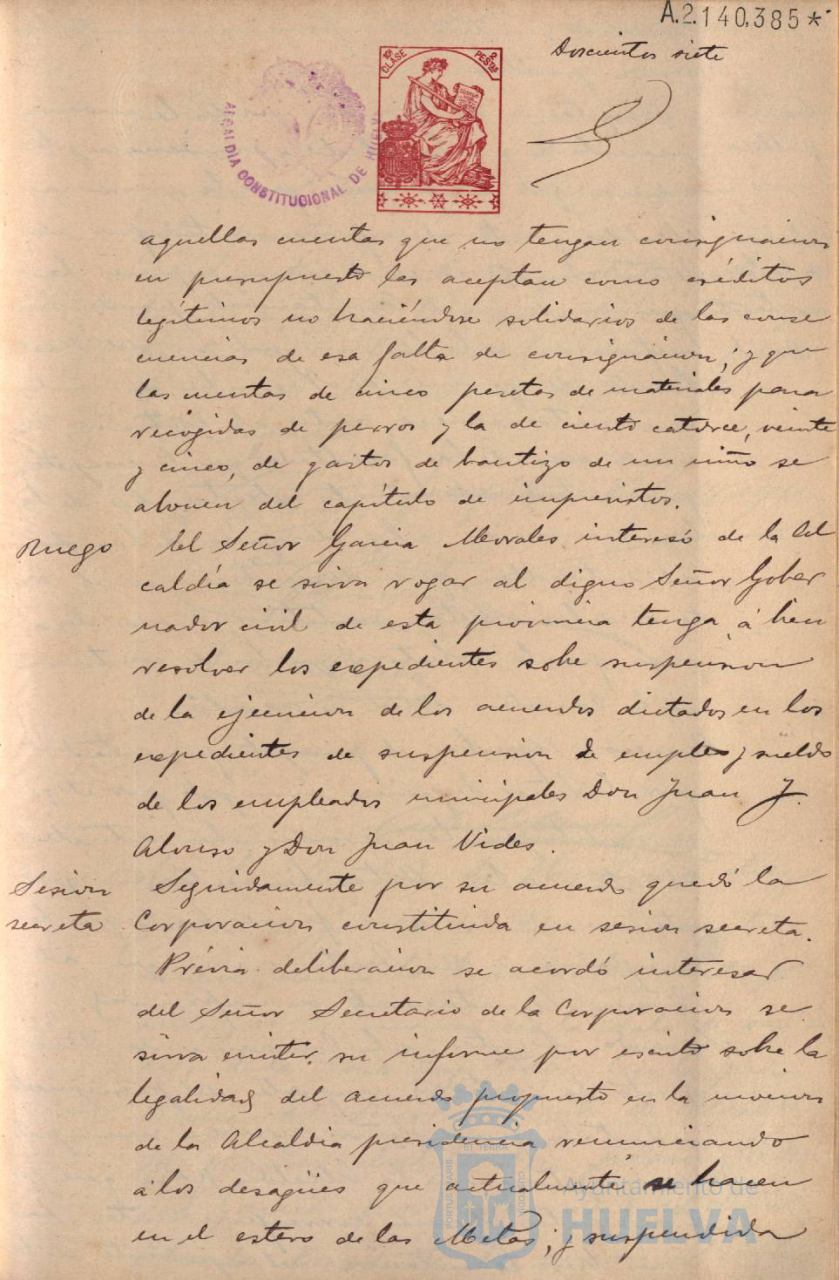 A.2.140,385*
Doscientos siete
10ª CLASE
2 PESTAS
ALCALDÍA CONSTITUCIONAL DE HUELVA
aquellas cuentas que no tengan consignacion
en presupuesto las aceptan como créditos
legítimos no haciéndose solidarios de las conse
cuencias de esa falta de consignacion; y que
las cuentas de cinco pesetas de materiales para
recogidas de perros y la de ciento catorce, veinte
y cinco, de gastos de bautizo de un niño se
abonen del capítulo de imprevistos.
Ruego
El Señor Garcia Morales interesó de la Al
caldía se sirva rogar al digno Señor Gober
nador civil de esta provincia tenga á bien
resolver los expedientes sobre suspension
de la ejecucion de los acuerdos dictados en los
expedientes de suspension de empleo y sueldo
de los empleados municipales Don Juan J.
Alonso y Don Juan Vides.
Sesion
secreta
Seguidamente por su acuerdo quedó la
Corporacion constituida en sesion secreta.
Prévia deliberacion se acordó interesar
del Señor Secretario de la Corporacion se
sirva emitir su informe por escrito sobre la
legalidad del acuerdo propuesto en la mocion
de la Alcaldia presidencia renunciando
á los desagües que actualmente se hacen
en el estero de las Metas; y suspendida
Ayuntamiento de
HUELVA